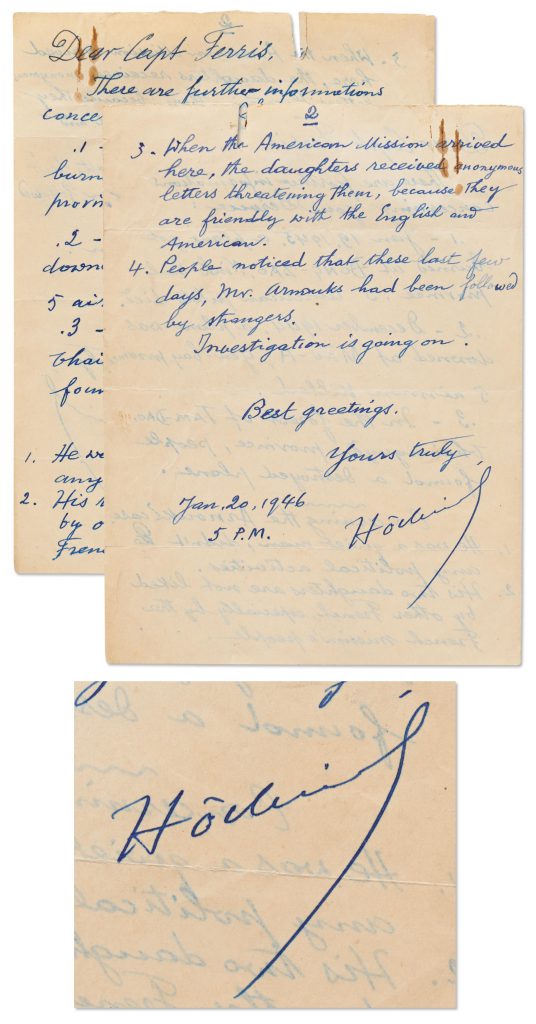 2
Dear Capt Ferris,
These are further informations
conce
.1 -
burn
provin
.2 -
down
5 ai
.3 -
Thai
foun
1. He wa
any
2. His
by o
Fren
2
3. When the American Mission arrived
here, the daughters received anonymous
letters threatening them, because they
are friendly with the English and
American.
4. People noticed that these last few
days, Mr. Armouks had been followed
by strangers.
Investigation is going on.
Best greetings.
Yours truly,
Jan. 20, 1946
5 P.M.
Hōchiminh
Hōchiminh